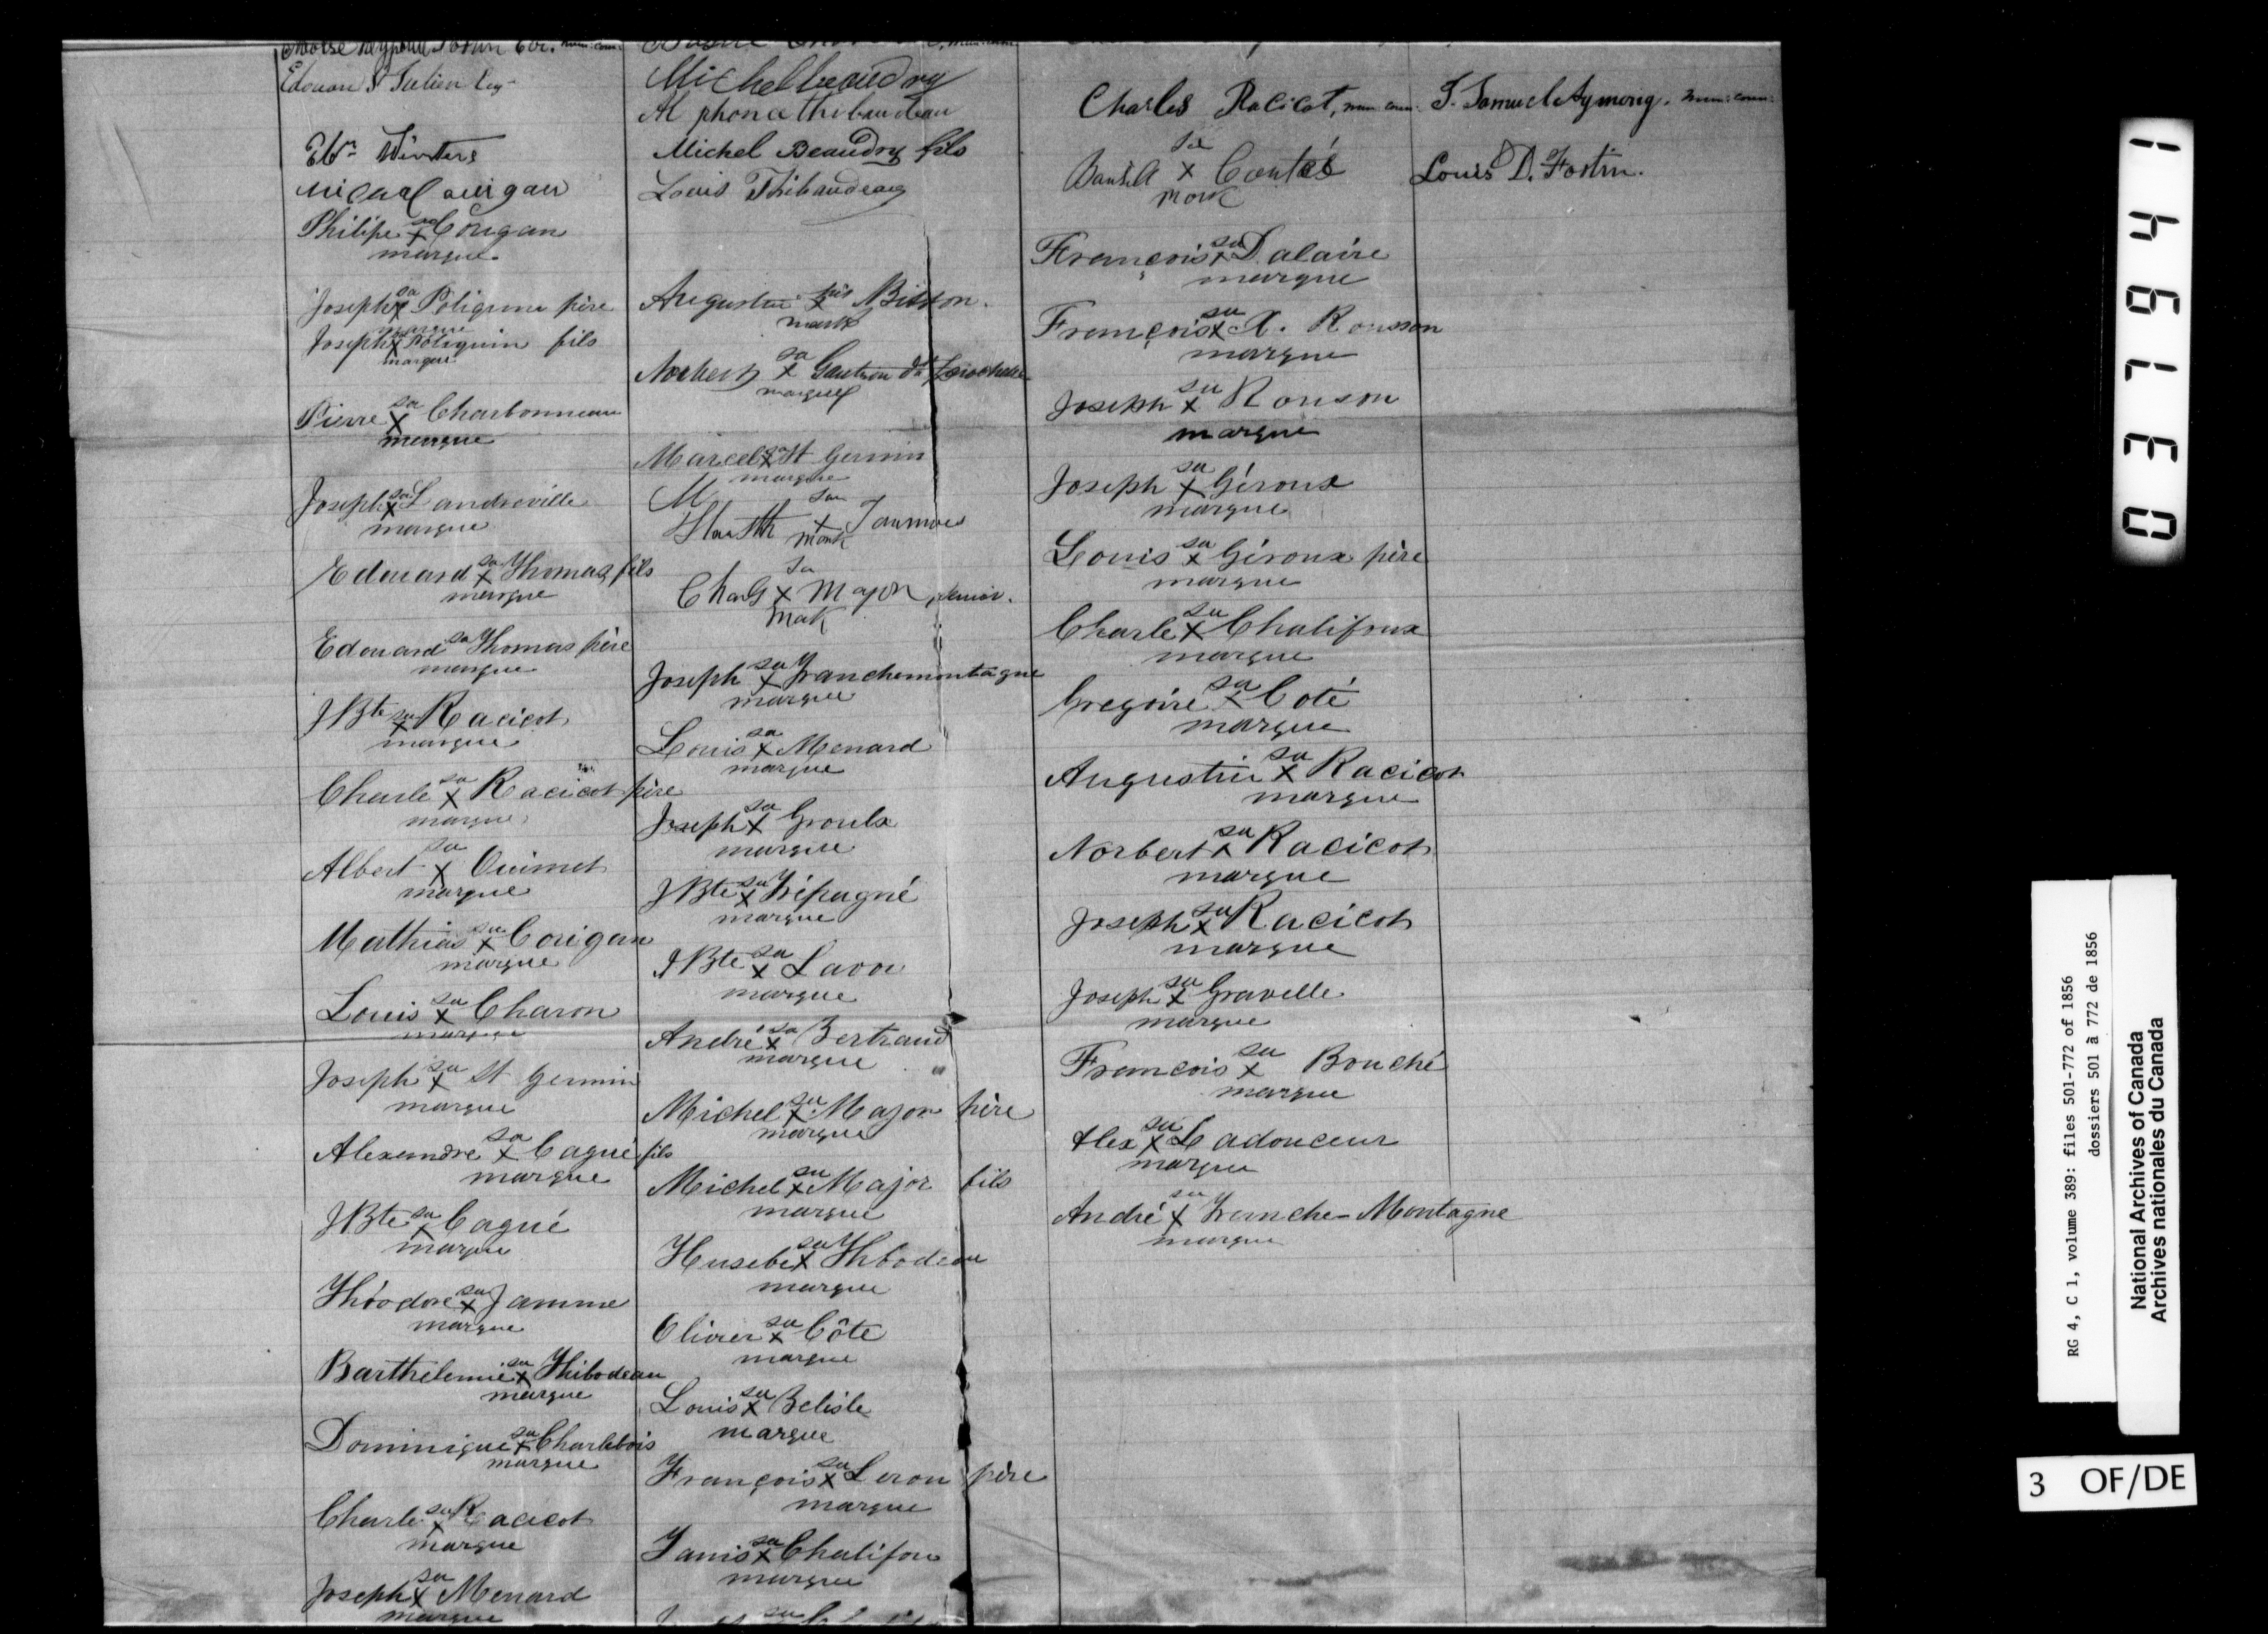 Edouard St Julien Esq.
Ebn. Winters
Philipe sa x Corigan
marque
Joseph sa x Poliquin père
marque
Joseph x Poliquin fils
marque
Pierre sa x Charbonneau
marque
Joseph sa x Landroville
marque
Edouard sa x Thomas fils
marque
Edouard sa Thomas père
marque
JBte sa x Racicot
marque
Charle sa x Racicot père
marque
Albert sa x Ouimet
marque
Mathias sa x Corigan
marque
Louis sa x Charon
marque
Joseph sa x St Germin
marque
Alexandre sa x Cagné fils
marque
JBte sa x Cagné
marque
Théodore sa x Jamme
marque
Barthelemie sa x Thibodeau
marque
Dominique sa x Charlebois
marque
Charle sa x Racicot
marque
Joseph sa x Menard
marque
Michel beaudry
Alphonce thibaudeau
Michel Beaudry fils
Louis Thibaudeau
Augustin his x Bisson.
mark
Norbert sa x Gautron dt Larochelle
marque
Marcel sa x St Germin
marque
M
sa x
mark
Charls sa x Major senior.
mark
Joseph sa x Tranchemontagne
marque
Louis sa x Menard
marque
Joseph sa x Groulx
marque
JBte sa x Trépagné
marque
JBte sa x Lavoi
marque
André sa x Bertrand
marque
Michel sa x Major père
marque
Michel sa x Major fils
marque
Husebe sa x Thbodeau
marque
Olivier sa x Côte
marque
Louis sa x Belisle
marque
François sa x Leron père
marque
Janis sa x Chalifou
marque
Charles Racicot, mun. coun.
sa x Contéé
mark
François sa x Dalaire
marque
François sa x X. Rousson
marque
Joseph sa x Rouson
marque
Joseph sa x Géroux
marque
Louis sa x Géroux père
marque
Charle sa x Chalifoux
marque
Gregoire sa x Coté
marque
Augustin sa x Racicot
marque
Norbert sa x Racicot
marque
Joseph sa x Racicot
marque
Joseph sa x Gravelle
marque
Francois sa x Bouché
marque
Alex sa x Ladouceur
marque
André sa x Tranche-Montagne
marque
J. Samuel Aymong. mun: coun:
Louis D. Fortin.
037941
RG 4, C 1, volume 389: files 501-772 of 1856
dossiers 501 à 772 de 1856
National Archives of Canada
Archives nationales du Canada
3 OF/DE